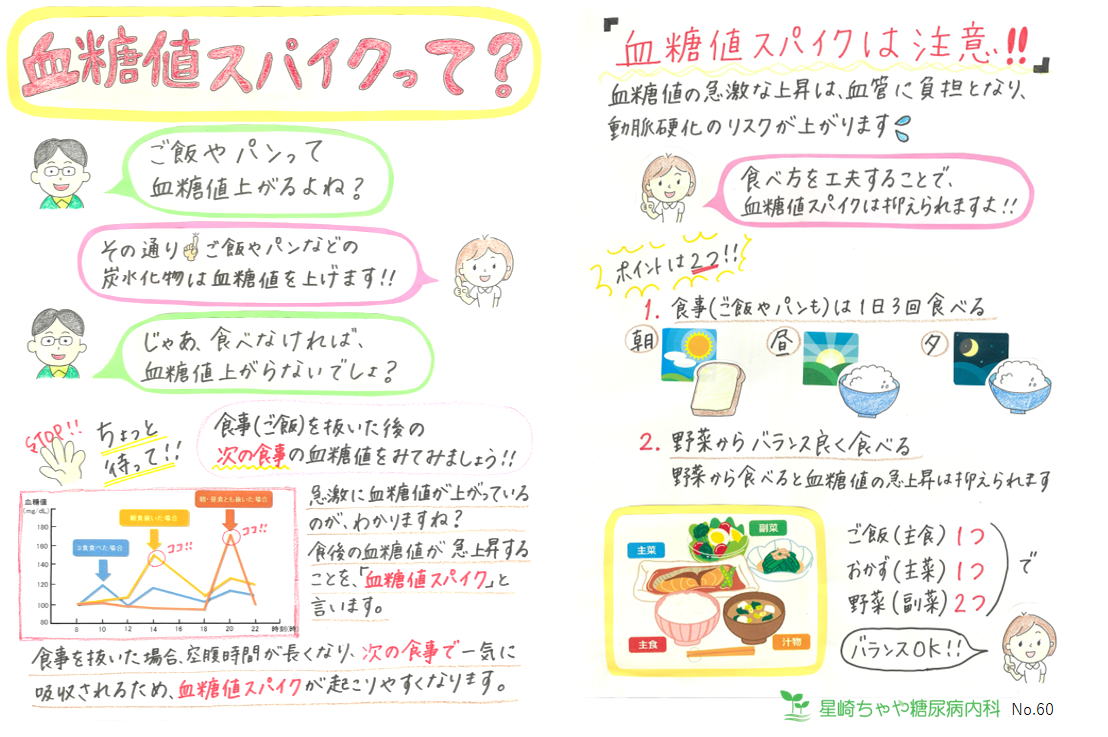 血糖値スパイクって？
ご飯やパンって
血糖値上がるよね？
その通り ご飯やパンなどの
炭水化物は血糖値を上げます!!
じゃあ、食べなければ、
血糖値上がらないでしょ？
STOP!!
ちょっと
待って!!
食事(ご飯)を抜いた後の
次の食事の血糖値をみてみましょう!!
血糖値
(mg/dL)
180
160
140
120
100
80
3食食べた場合
朝食抜いた場合
朝・昼食とも抜いた場合
ココ!!
ココ!!
8 10 12 14 16 18 20 22 時刻(時)
急激に血糖値が上がっている
のが、わかりますね？
食後の血糖値が急上昇する
ことを、「血糖値スパイク」と
言います。
食事を抜いた場合、空腹時間が長くなり、次の食事で一気に
吸収されるため、血糖値スパイクが起こりやすくなります。
「血糖値スパイクは注意!!」
血糖値の急激な上昇は、血管に負担となり、
動脈硬化のリスクが上がります
食べ方を工夫することで、
血糖値スパイクは抑えられますよ!!
ポイントは2つ!!
1. 食事(ご飯やパンも)は1日3回食べる
朝 昼 夕
2. 野菜からバランス良く食べる
野菜から食べると血糖値の急上昇は抑えられます
副菜
主菜
主食
汁物
ご飯(主食) 1つ
おかず(主菜) 1つ
野菜(副菜) 2つ
で
バランスOK!!
星崎ちゃや糖尿病内科 No.60